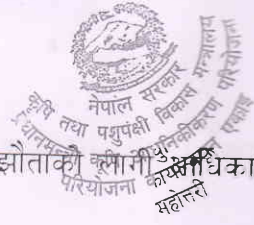 नेपाल सरकार
कृषि तथा पशुपंक्षी विकास मन्त्रालय
प्रधानमन्त्री कृषि आधुनिकीकरण परियोजना
परियोजना कार्यान्वयन एकाइ
महोत्तरी
झौताको लागी